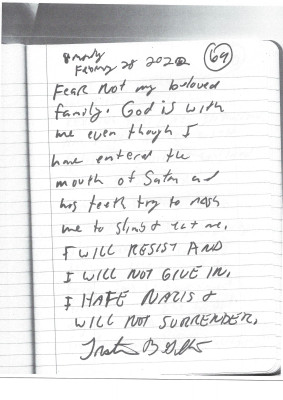 February 28 2022 69
Fear not my beloved
family. God is with
me even though I
have entered the
mouth of Satan and
his teeth try to mash
me to slime & eat me.
I WILL RESIST AND
I WILL NOT GIVE IN.
I HATE NAZIS &
WILL NOT SURRENDER.